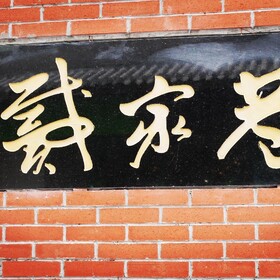 戴家巷